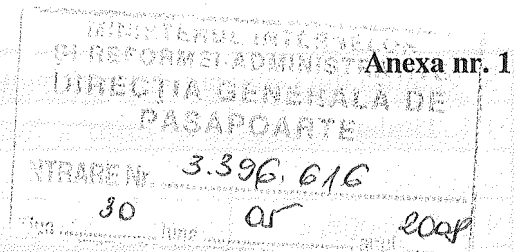 MINISTERUL INTERNELOR
ŞI REFORMEI ADMINISTRATIVE
Anexa nr. 1
DIRECŢIA GENERALĂ DE
PAŞAPOARTE
INTRARE Nr. 3.396.616
30 luna 05 anul 2008